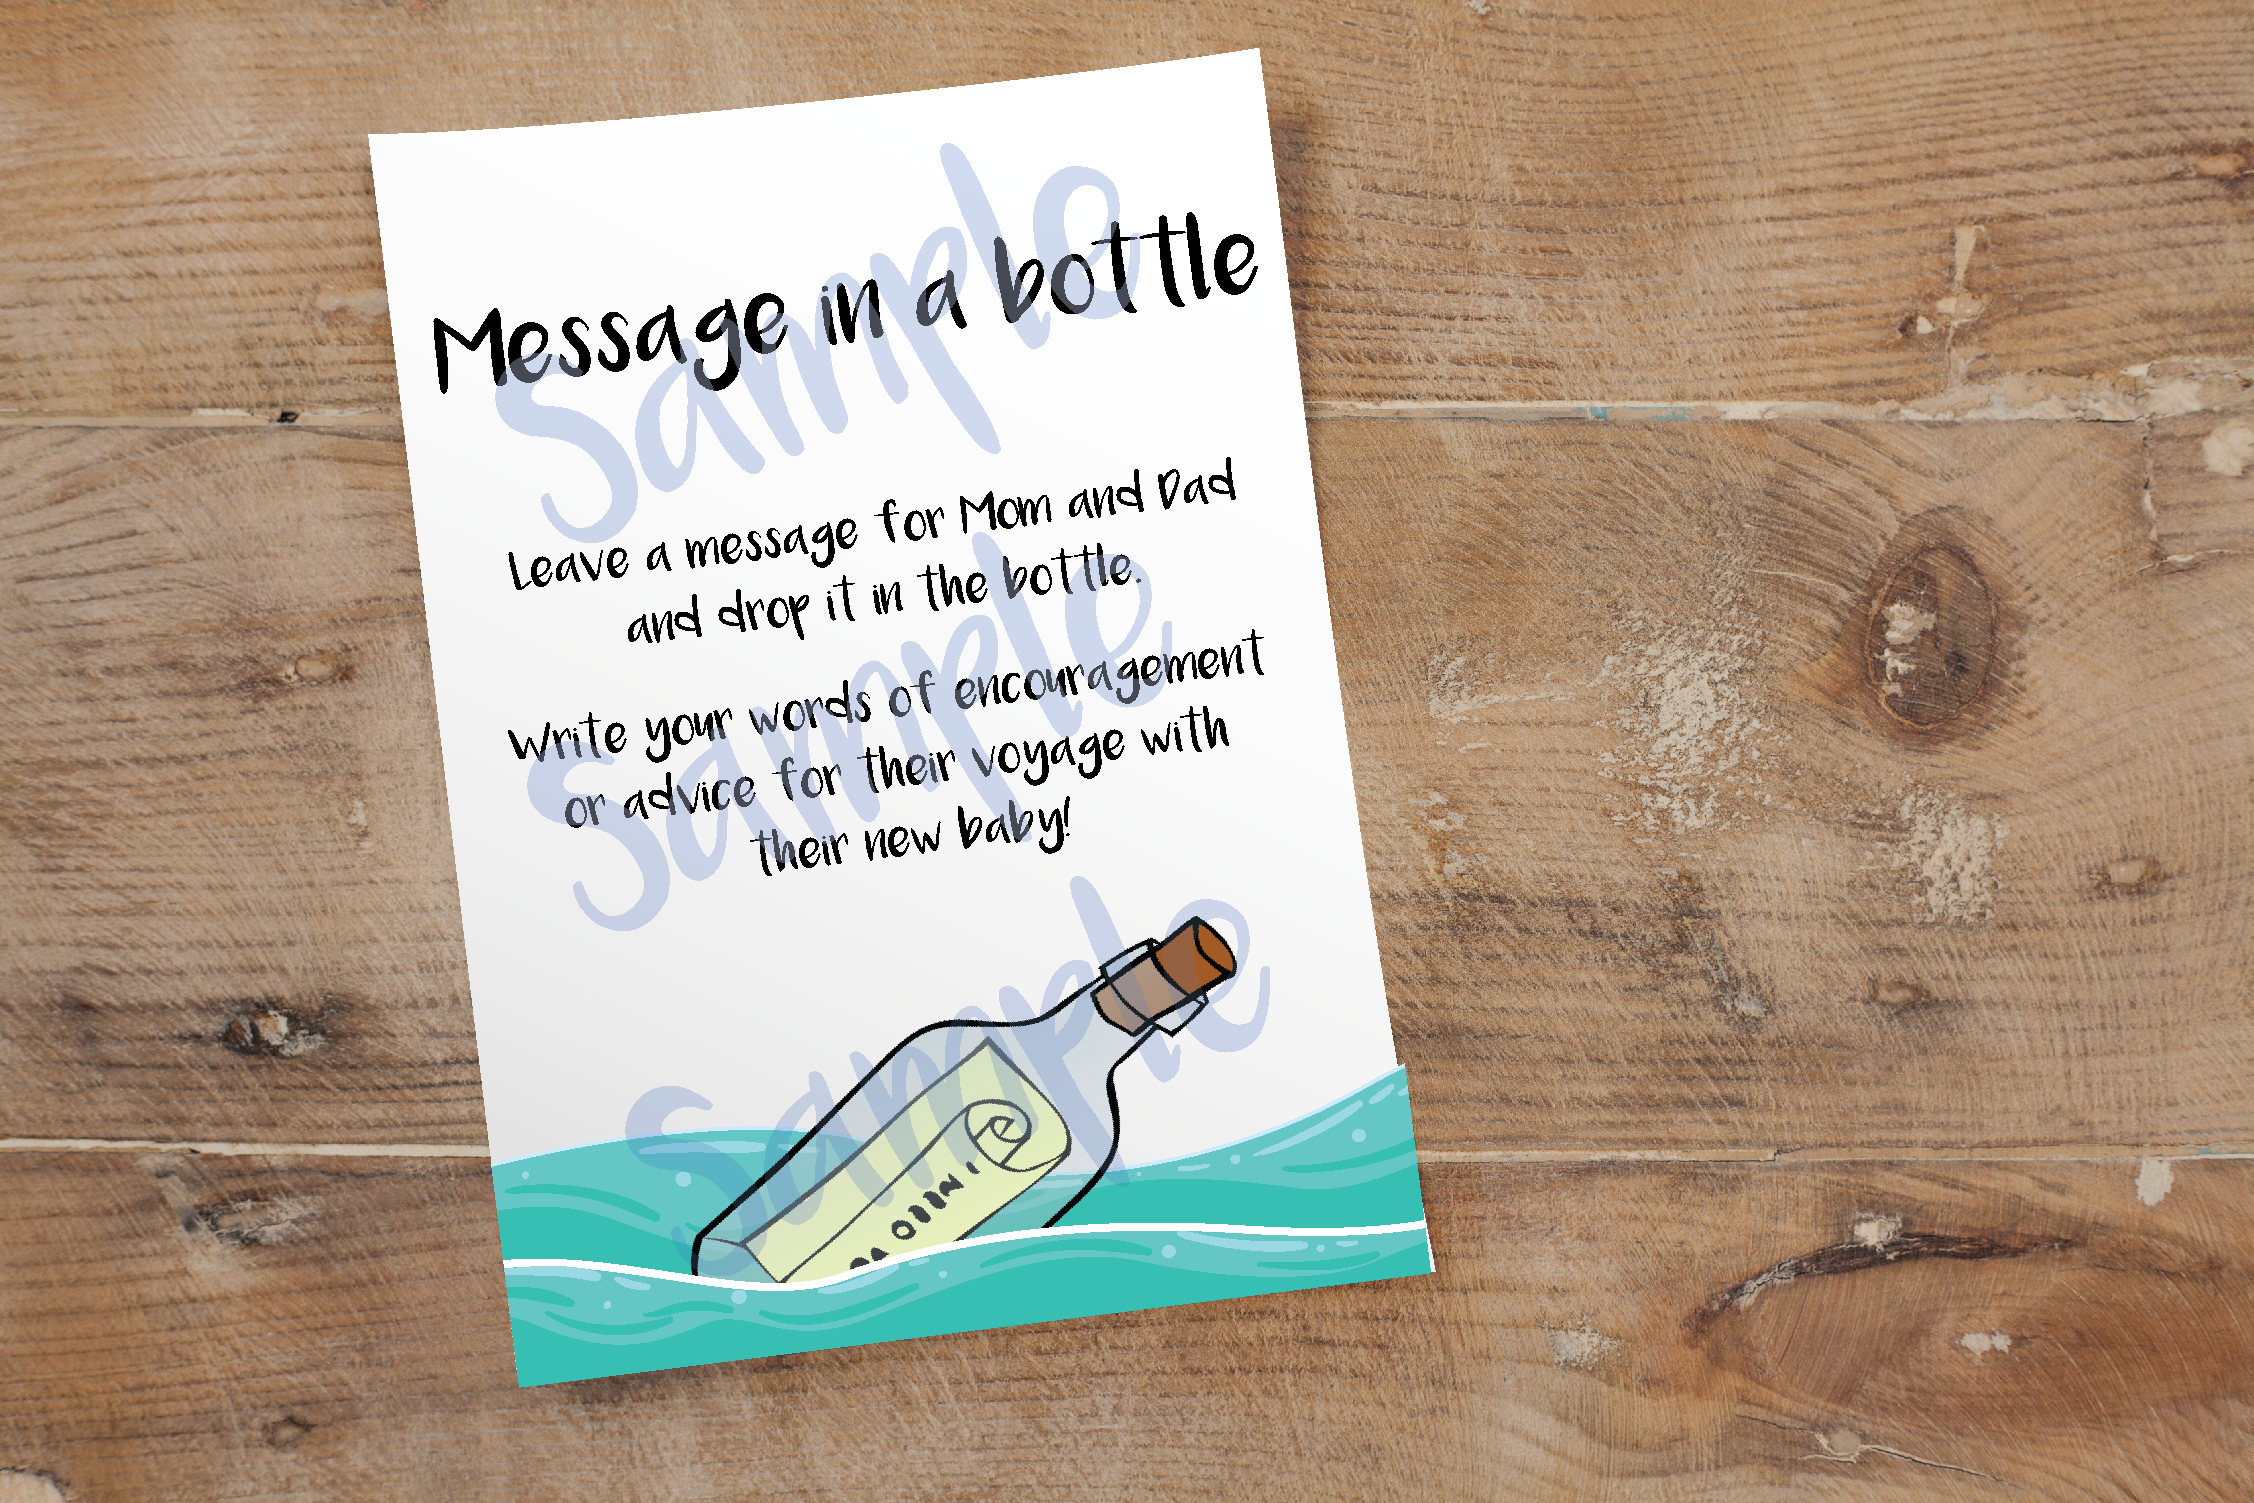 Message in a bottle
Leave a message for Mom and Dad
and drop it in the bottle.
Write your words of encouragement
or advice for their voyage with
their new baby!
Sample
Sample
Sample